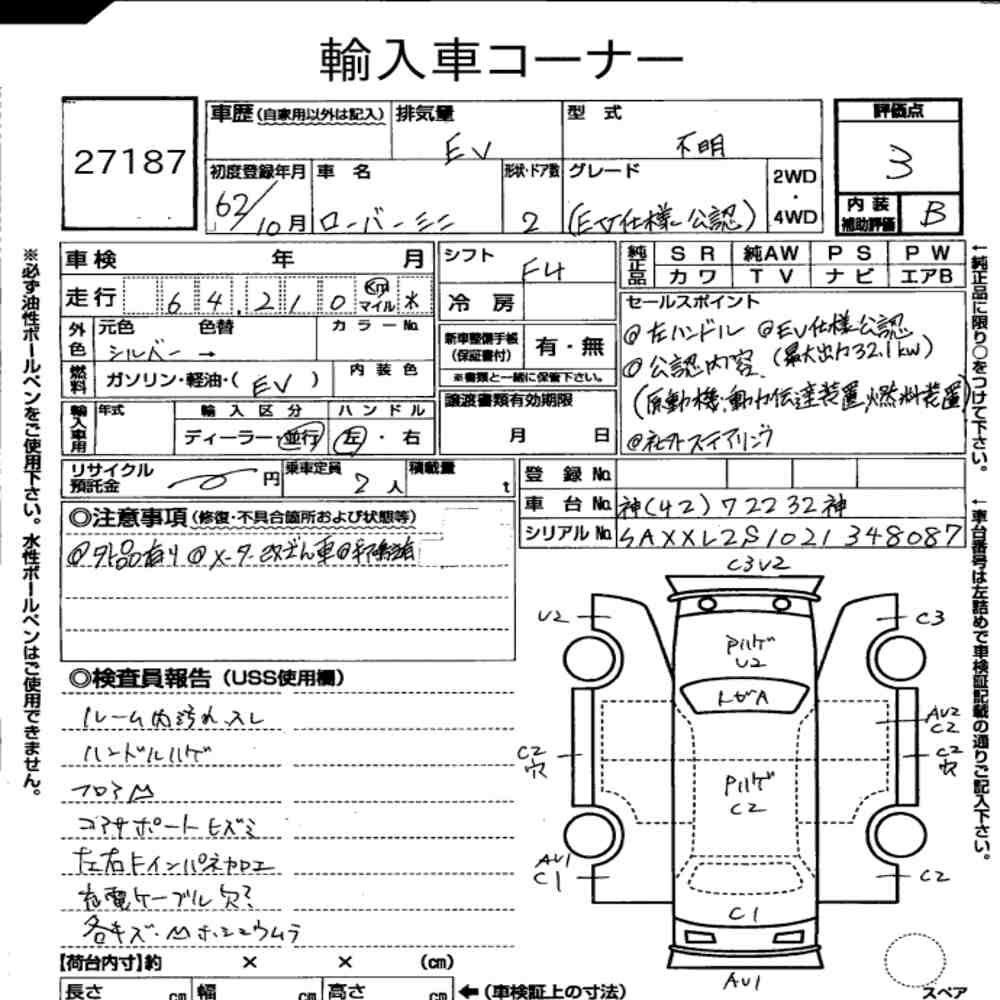 輸入車コーナー
27187
車歴 (自家用以外は記入)
排気量
EV
型式
不明
評価点
3
初度登録年月
62/10月
車名
ローバーミニ
形状・ドア数
2
グレード
(EV仕様・公認)
2WD
・
4WD
内装
補助評価
B
車検 年 月
走行 64,210 Km マイル
シフト
F4
純正品
SR 純AW PS PW
カワ TV ナビ エアB
冷房
セールスポイント
@左ハンドル @EV仕様公認
@公認内容 (最大出力32.1kw)
(原動機・動力伝達装置,燃料装置)
@社外ステアリング
外色
元色 色替
シルバー →
カラーNo.
新車整備手帳
(保証書付)
有・無
※書類と一緒に保管下さい。
燃料
ガソリン・軽油・( EV )
内装色
譲渡書類有効期限
月 日
輸入車用
年式
輸入区分
ディーラー・並行
ハンドル
左・右
リサイクル
預託金
円
乗車定員
2人
積載量
t
登録No.
車台No. 神(42)72232神
シリアルNo. SAXXL2S1021348087
◎注意事項 (修復・不具合箇所および状態等)
@外品有り @メーター改ざん車@
◎検査員報告 (USS使用欄)
ルーム内汚れ、スレ
ハンドルハゲ
フロアM
コアサポートヒズミ
左右Fインパネカロエ
充電ケーブル欠?
各キズ・M
C3V2
U2
C3
Pハゲ
U2
トビA
AU2
C2
C2
穴
C2
穴
Pハゲ
C2
AU1
C1
C2
C1
AU1
【荷台内寸】約 × × (cm)
長さ cm 幅 cm 高さ cm ←(車検証上の寸法)
スペア
※必ず油性ボールペンをご使用下さい。水性ボールペンはご使用できません。
←純正品に限り○をつけて下さい。
←車台番号は左詰めで車検証記載の通りご記入下さい。